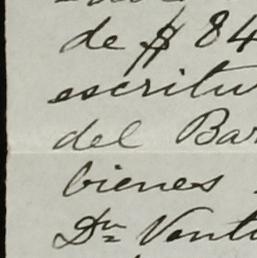 de $ 84
escritu
del Bar
bienes
Dn Ventu